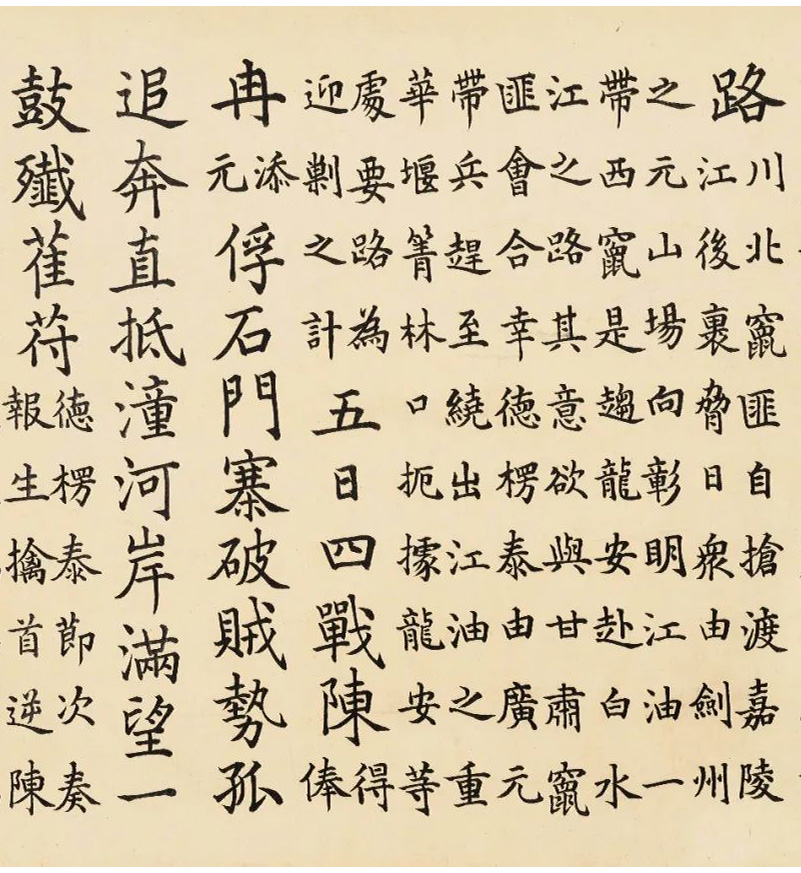 路
川北竄匪自搶渡嘉陵
江後裹脅日衆由劍州
之元山場向彰明江油一
帶西竄是趨龍安赴白水
江之路其意欲與甘肅竄
匪會合幸德楞泰由廣元
帶兵趕至繞出江油之重
華堰箐林口扼據龍安等
處要路為
迎剿之計
五日四戰陳
得
俸
冉
添
元
俘石門寨破賊勢孤
追奔直抵潼河岸滿望一
鼓殲萑苻
德楞泰節次奏
報生擒首逆陳